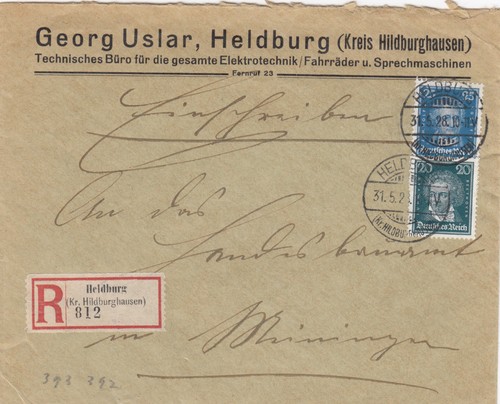 Georg Uslar, Heldburg (Kreis Hildburghausen)
Technisches Büro für die gesamte Elektrotechnik / Fahrräder u. Sprechmaschinen
Fernruf 23
Einschreiben
25
31.5.28.10
HELDB
20 20
31.5.2
Deutsches Reich
An das
Landesbauamt
in Meiningen
R
Heldburg
(Kr. Hildburghausen)
812
393 392